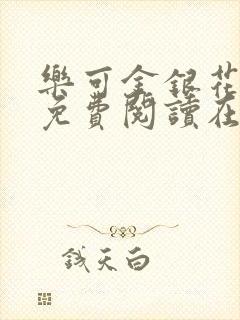 樂可金銀花
免費閱讀在
錢天白